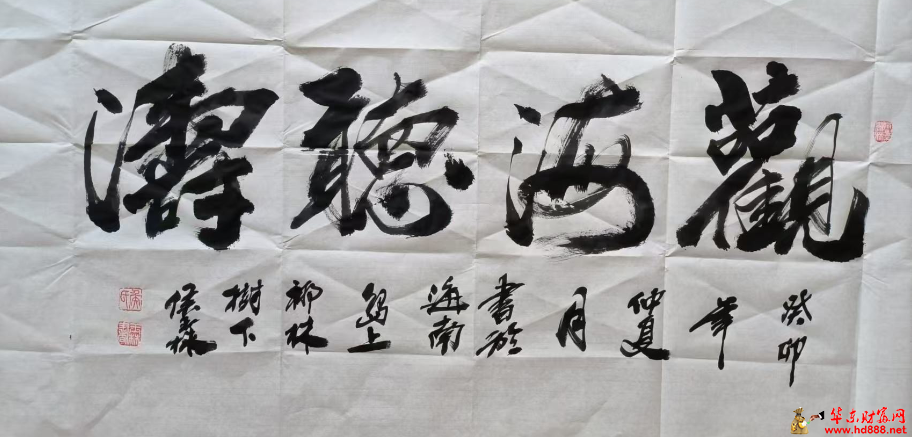 觀海聽濤
癸卯
年
仲夏
月
書於
海南
島上
椰林
樹下
華东财富网
www.hd888.net